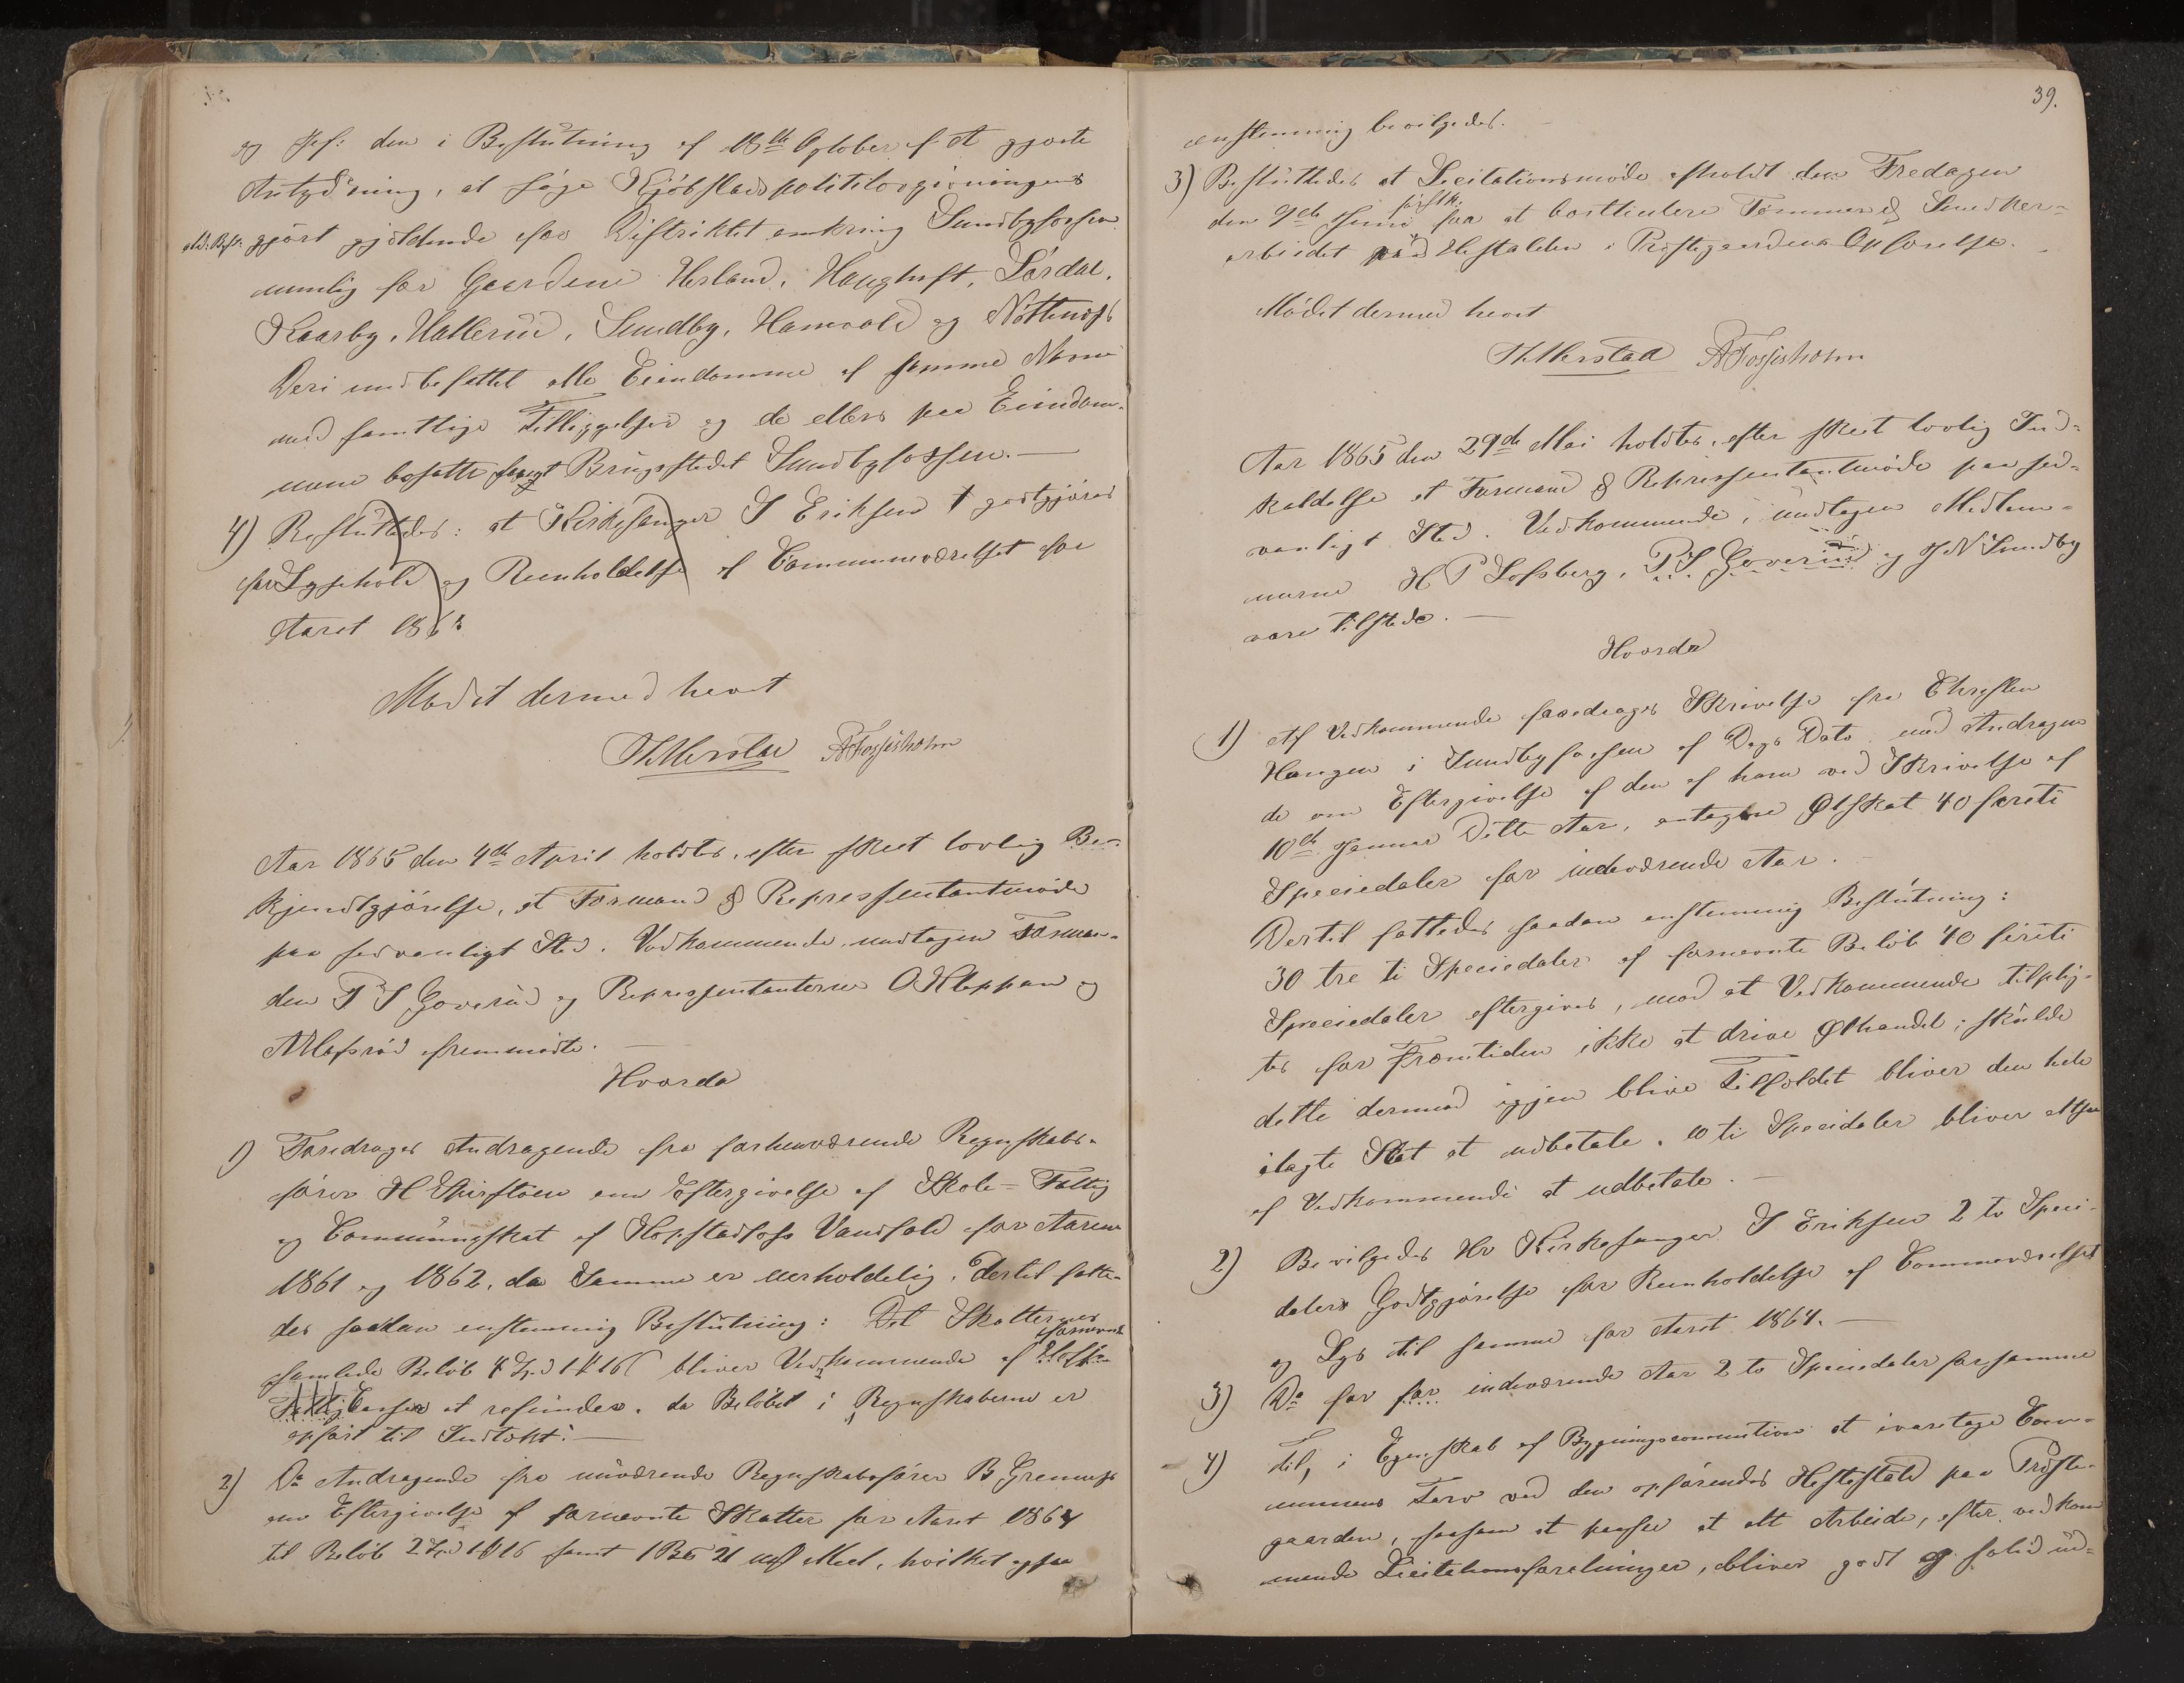 og Jef: den i Beslutning af 18de Oktober f. A gjorte
Antydning, at søge Kjøbstadspolitilovgivningens
gjørt gjeldende for Distriktet omkring Sundbyfossen
nemlig for Gaardene Herland, Haughuft, Sørdal,
Kaarby, Hallerud, Sundby, Hamvold og
Deri indbefattet alle Eiendomme af samme Navn
med samtlige Tilliggelser og de ellers paa Eiendom-
mene bosatte samt Brugsstedet Sundbyfossen. —
4) Besluttedes: at Kirkesanger S Eriksen godtgjøres
for Lysehold og Reenholdelse af Communeværelset for
Aaret 186
Mødet dermed hevet
AFossesholm
Aar 1865 den 4de April holdtes, efter skeet lovlig Be-
kjendtgjørelse, et Formand & Repræsentantmøde
paa sedvanligt Sted. Vedkommende, undtagen Forman-
den P S Goverud og Repræsentanterne O Kleppan og
fremmødte. —
Hvorda
1) Foredroges Andragende fra forhenværende Regnskabs-
fører H om Eftergivelse af Skole- Fattig
og Communeskat af Hopstadfoss Vandfald for Aarene
1861 og 1862, da Samme er uerholdelig. Dertil fatte-
des saadan enstemmig Beslutning: Det Skatternes
samlede Beløb 4 Spd 1 16 bliver Vedkommende af fornevnte
Casser at refundere, da Beløbet i Regnskaberne er
opført til Indtægt. —
2) Do Andragende fra nuværende Regnskabsfører B
om Eftergivelse af fornevnte Skatter for Aaret 1864
til Beløb 2 Spd 1 16 samt 1 21 Meel, hvilket ogsaa
39.
enstemmig bevilgedes. —
3) Besluttedes at Licitationsmøde afholdt den Fredagen
den 9de Juni førstk. for at bortlicitere Tømmer & Snedker-
arbeidet paa Hestalden i Prestegaardens Opførelse. —
Mødet dermed hevet
AFossesholm
Aar 1865 den 29de Mai holdtes, efter skeet lovlig Ind-
kaldelse et Formand & Repræsentantmøde paa sed-
vanligt Sted. Vedkommende, undtagen Medlem-
merne H P Lofsberg, P S Goverud og J N Sundby
vare tilstede. —
Hvorda
1) Af Vedkommende foredroges Skrivelse fra Christen
Haugen i Sundbyfossen af Dags Dato med Andragen
de om Eftergivelse af den af ham ved Skrivelse af
10de Januar dette Aar, antagne Ølskat 40 førreti
Speciedaler for indeværende Aar. —
Dertil fattedes saadan enstemmig Beslutning:
30 tre ti Speciedaler af fornevnte Beløb 40 førreti
Speciedaler eftergives, mod at Vedkommende tilplig-
tes for Fremtiden ikke at drive Ølhandel; skulde
dette dermed igjen blive Tilfældet bliver den hele
ilagte Skat at udbetale. 10 ti Speciedaler bliver altsaa
af Vedkommende at udbetale. —
2) Bevilgedes Hr Kirkesanger S Eriksen 2 to Speci-
dalers Godtgjørelse for Reenholdelse af Communeværelset
og Lys til samme for Aaret 1864. —
3) Do for for indeværende Aar 2 to Speciedaler for samme
4) Til, i Egenskab af Bygningscommition at ivaretage Com-
munens Tarv ved den opførendes Hestestald paa Preste-
gaarden, saasom at paasee at alt Arbeide, efter vedkom
mende Licitationsforetninger, bliver godt og solid ud-